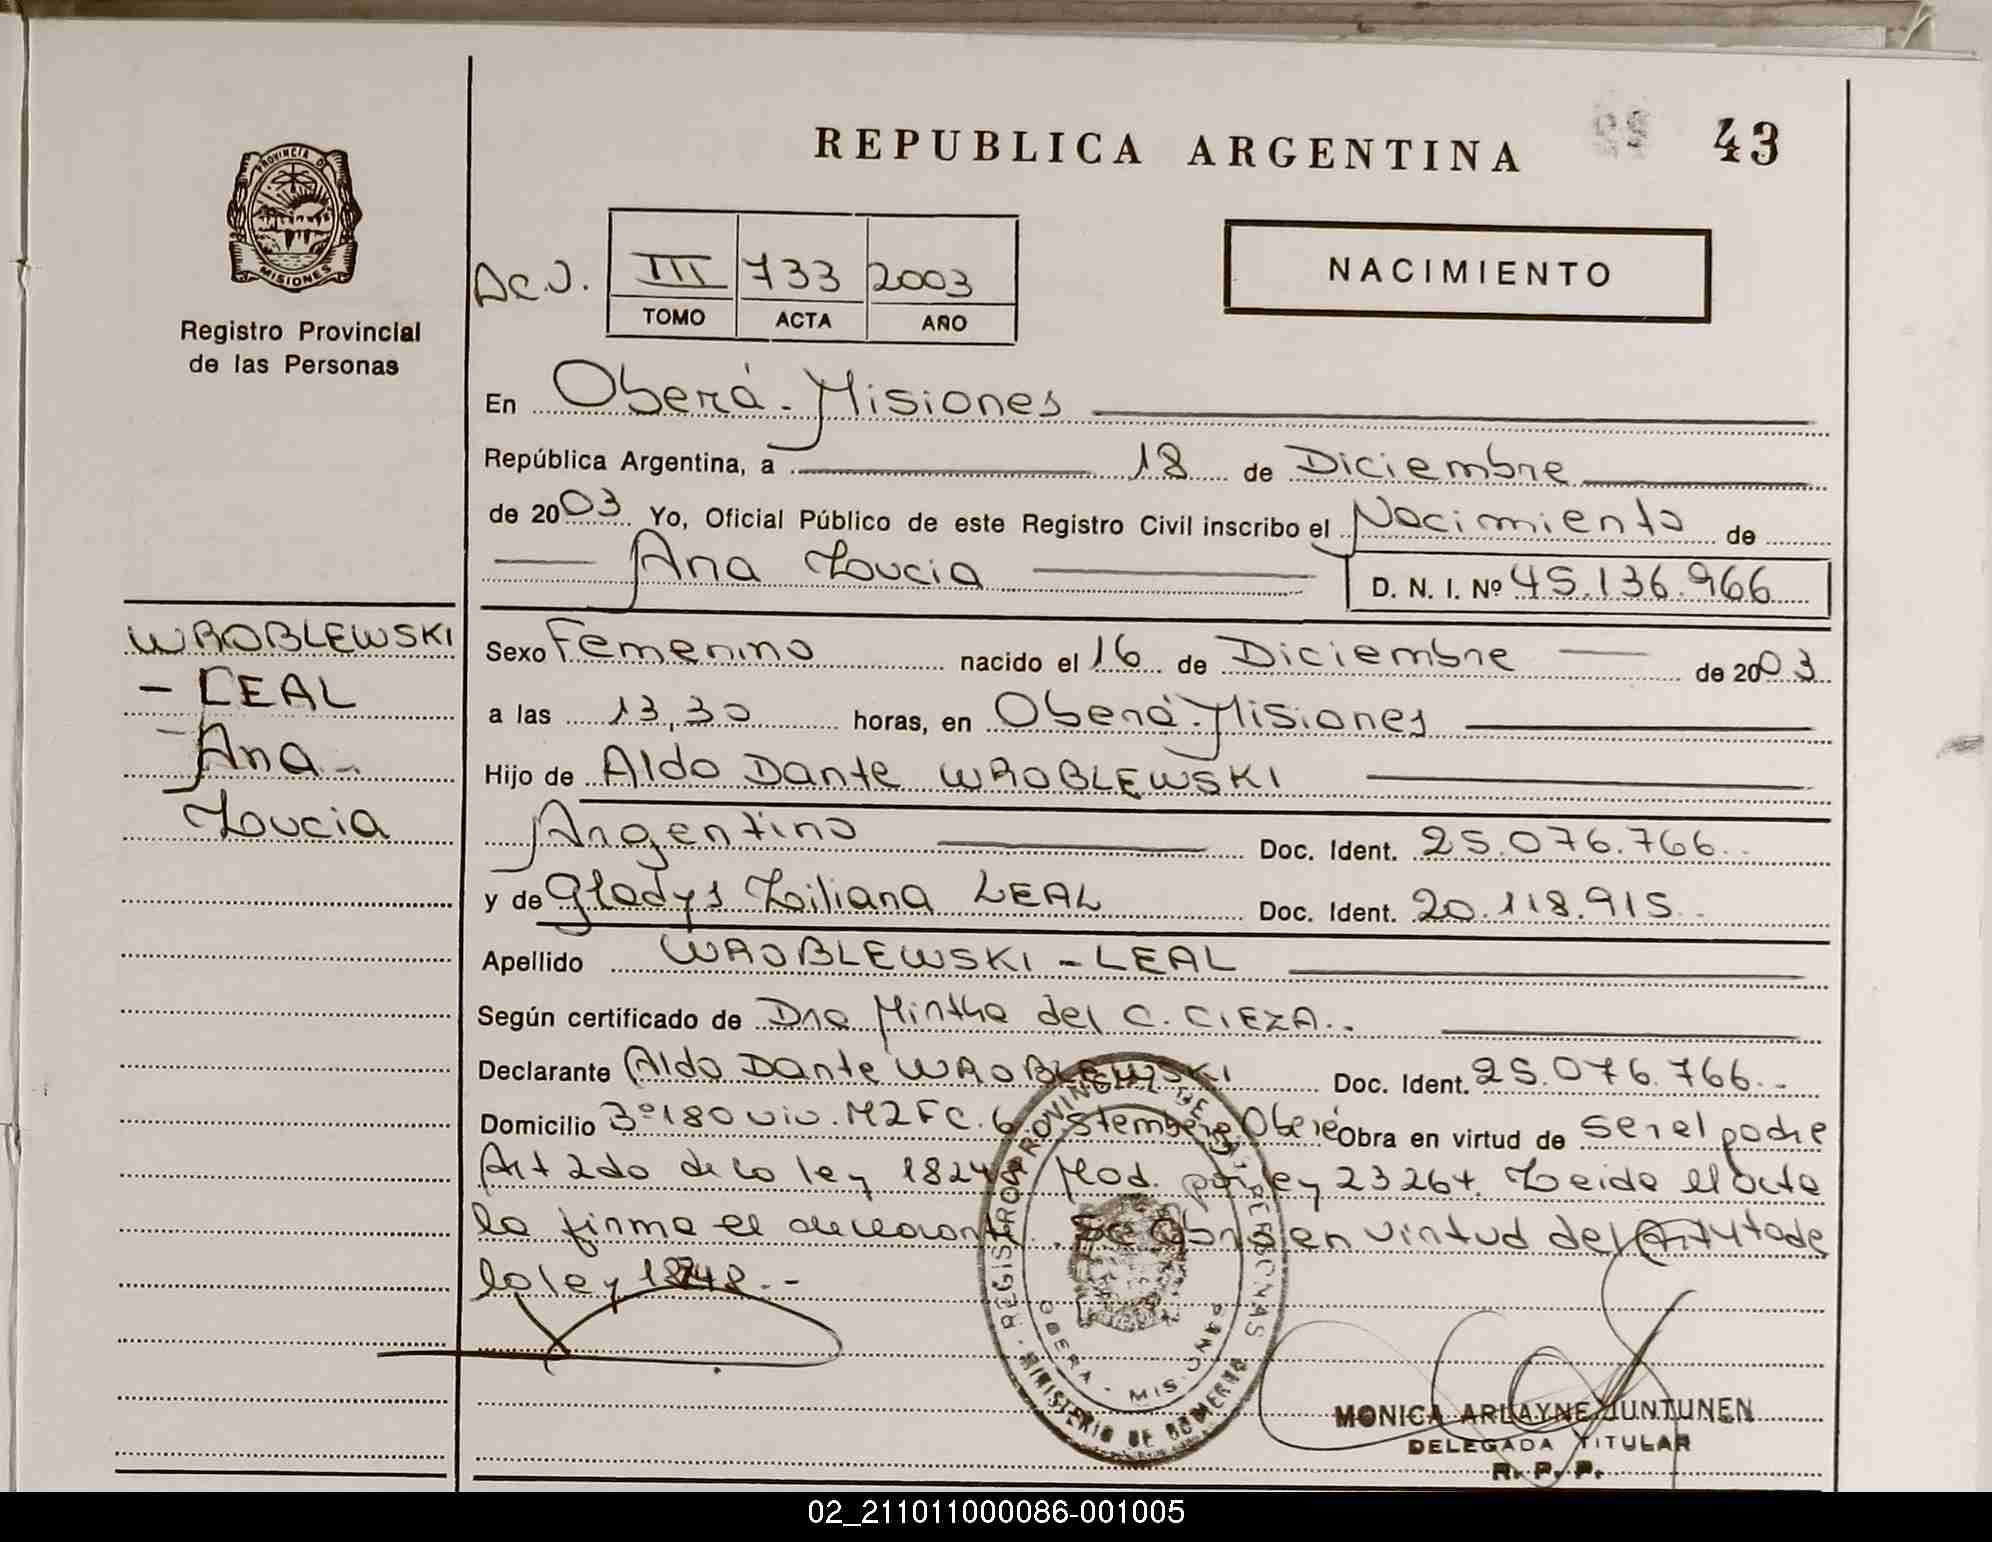 REPUBLICA ARGENTINA 43
PROVINCIA DE
MISIONES
Registro Provincial
de las Personas
Ac.J. III 733 2003
TOMO ACTA AÑO
NACIMIENTO
En Oberá - Misiones
República Argentina, a 18 de Diciembre
de 2003 Yo, Oficial Público de este Registro Civil inscribo el Nacimiento de
Ana Lucia D. N. I. Nº 45.136.966
WROBLEWSKI
- LEAL
- Ana -
Lucia
Sexo Femenino nacido el 16 de Diciembre de 2003
a las 13,30 horas, en Oberá - Misiones
Hijo de Aldo Dante WROBLEWSKI
Argentino Doc. Ident. 25.076.766
y de Gladys Liliana LEAL Doc. Ident. 20.118.915
Apellido WROBLEWSKI - LEAL
Según certificado de Dra Mirtha del C. CIEZA.
Declarante Aldo Dante WROBLEWSKI Doc. Ident. 25.076.766.-
Domicilio 3º 180 viv. M2 FC. 6 Oberá Obra en virtud de ser el padre
Art 2do de la ley 18248 Mod. por ley 23264. Leida el acta
la firma el declarante. Se Obra en virtud del de
la ley 18248.-
REGISTRO PROVINCIAL DE LAS PERSONAS
OBERA - MISIONES
MINISTERIO DE GOBIERNO
MONICA ARLAYNE JUNTUNEN
DELEGADA TITULAR
R. P. P.
02_211011000086-001005